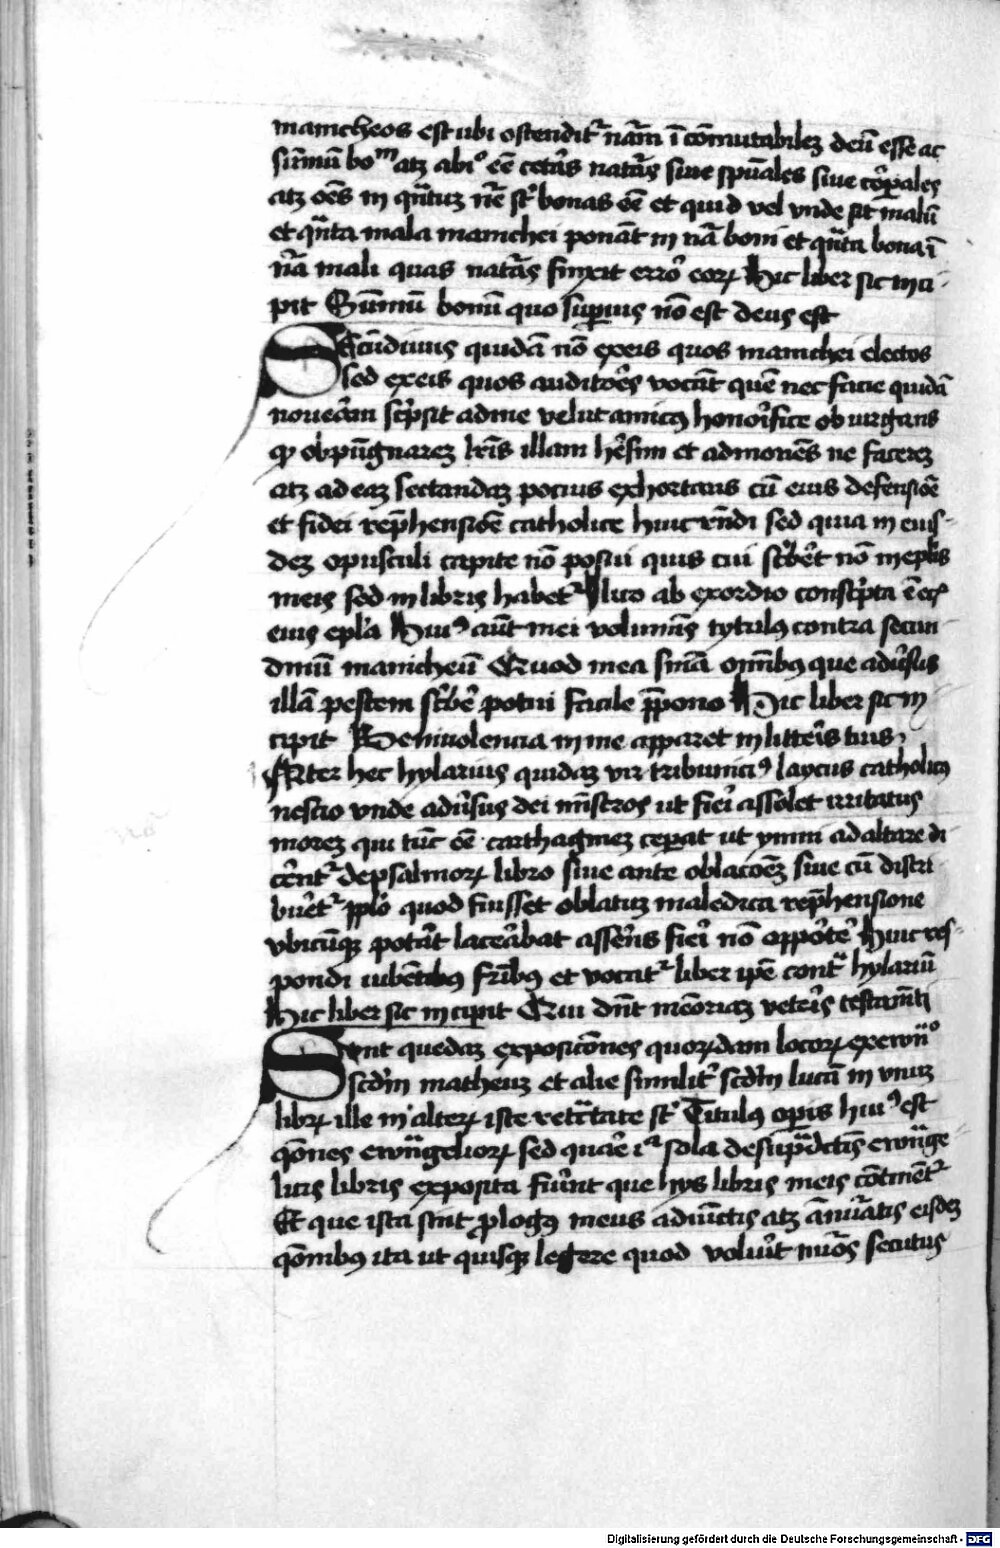 manicheos est ubi ostendit̉ nãm ĩcõmutabilez deũ esse ac
sũmũ boᵐ atz ab iº eẽ cet̉as nat̉as siue spũales siue corpales
atz oẽs in qñtuz nẽ st̉ bonas eẽ et quid vel vnde sit malũ
et qñta mala manichei ponãt in nã boni et qñta bona ĩ
nã mali quas nat̉as finxit error eoꝝ Hic liber sic inci-
pit Sũmũ bonũ quo supius nõ est deus est
Secũdinus quidã nõ ex eis quos manichei electos
sed ex eis quos auditores vocãt quẽ nec facie quidẽ
noueram scpsit ad me velut amicus honorifice obiurgans
ꝙ obpũgnarez lris illam hesim et admonẽs ne facerez
atz ad eaz sectandaz pocius exhortans cũ eius defensiõe
et fidei rephensiõe catholice huic rñdi sed quia in eius-
dez opusculi capite nõ posui quis cui scberet nõ in eplis
meis sed in libris habet̉ Illic ab exordio conscpta ẽ ecʳ
eius epla Huiꝰ aũt mei voluminis tytulus contra secun
dinũ manicheũ Quod mea snĩa omnibus que adũsus
illã pestem scbere potui facile ppono Hic liber sic in
cipit Beniuolencia in me apparet in litteris tuis
Inter hec hylarius quidaz vir tribuniciꝰ laycus catholicus
nescio vnde adũsus dei mĩstros ut fieri assolet irritatus
morez qui tũc eẽ carthaginez ceperat ut ymni ad altare di
cent̉ de psalmoꝝ libro siue ante oblacõez siue cũ distri
buet̉ pplo quod fuisset oblatuz maledica rephensione
vbicũqꝫ potat lacerabat asserens fieri nõ opporte Huic res-
pondi iubentibus fribus et vocat̉ liber ipe cont̃ hylariũ
Hic liber sic incipit Qui dñt memoriaz veteris testamĩti
Sunt quedaz exposicõnes quorꝝdam locoꝝ ex ewãº
scdm matheuz et alie similit̉ scdm lucã in vnuz
librꝝ ille in alterꝝ iste retctate st̉ Titulus opis huiꝰ est
qõnes ewãgelioꝝ sed quare iª sola de supdictis ewãge-
licis libris exposita fuũnt que hys libris meis cõtinent̉
Et que ista sint plogus meus adiũctis atz ãnũatis eisdez
qõnibus ita ut quisqꝫ legere quod voluit nũos secutus
Digitalisierung gefördert durch die Deutsche Forschungsgemeinschaft - DFG